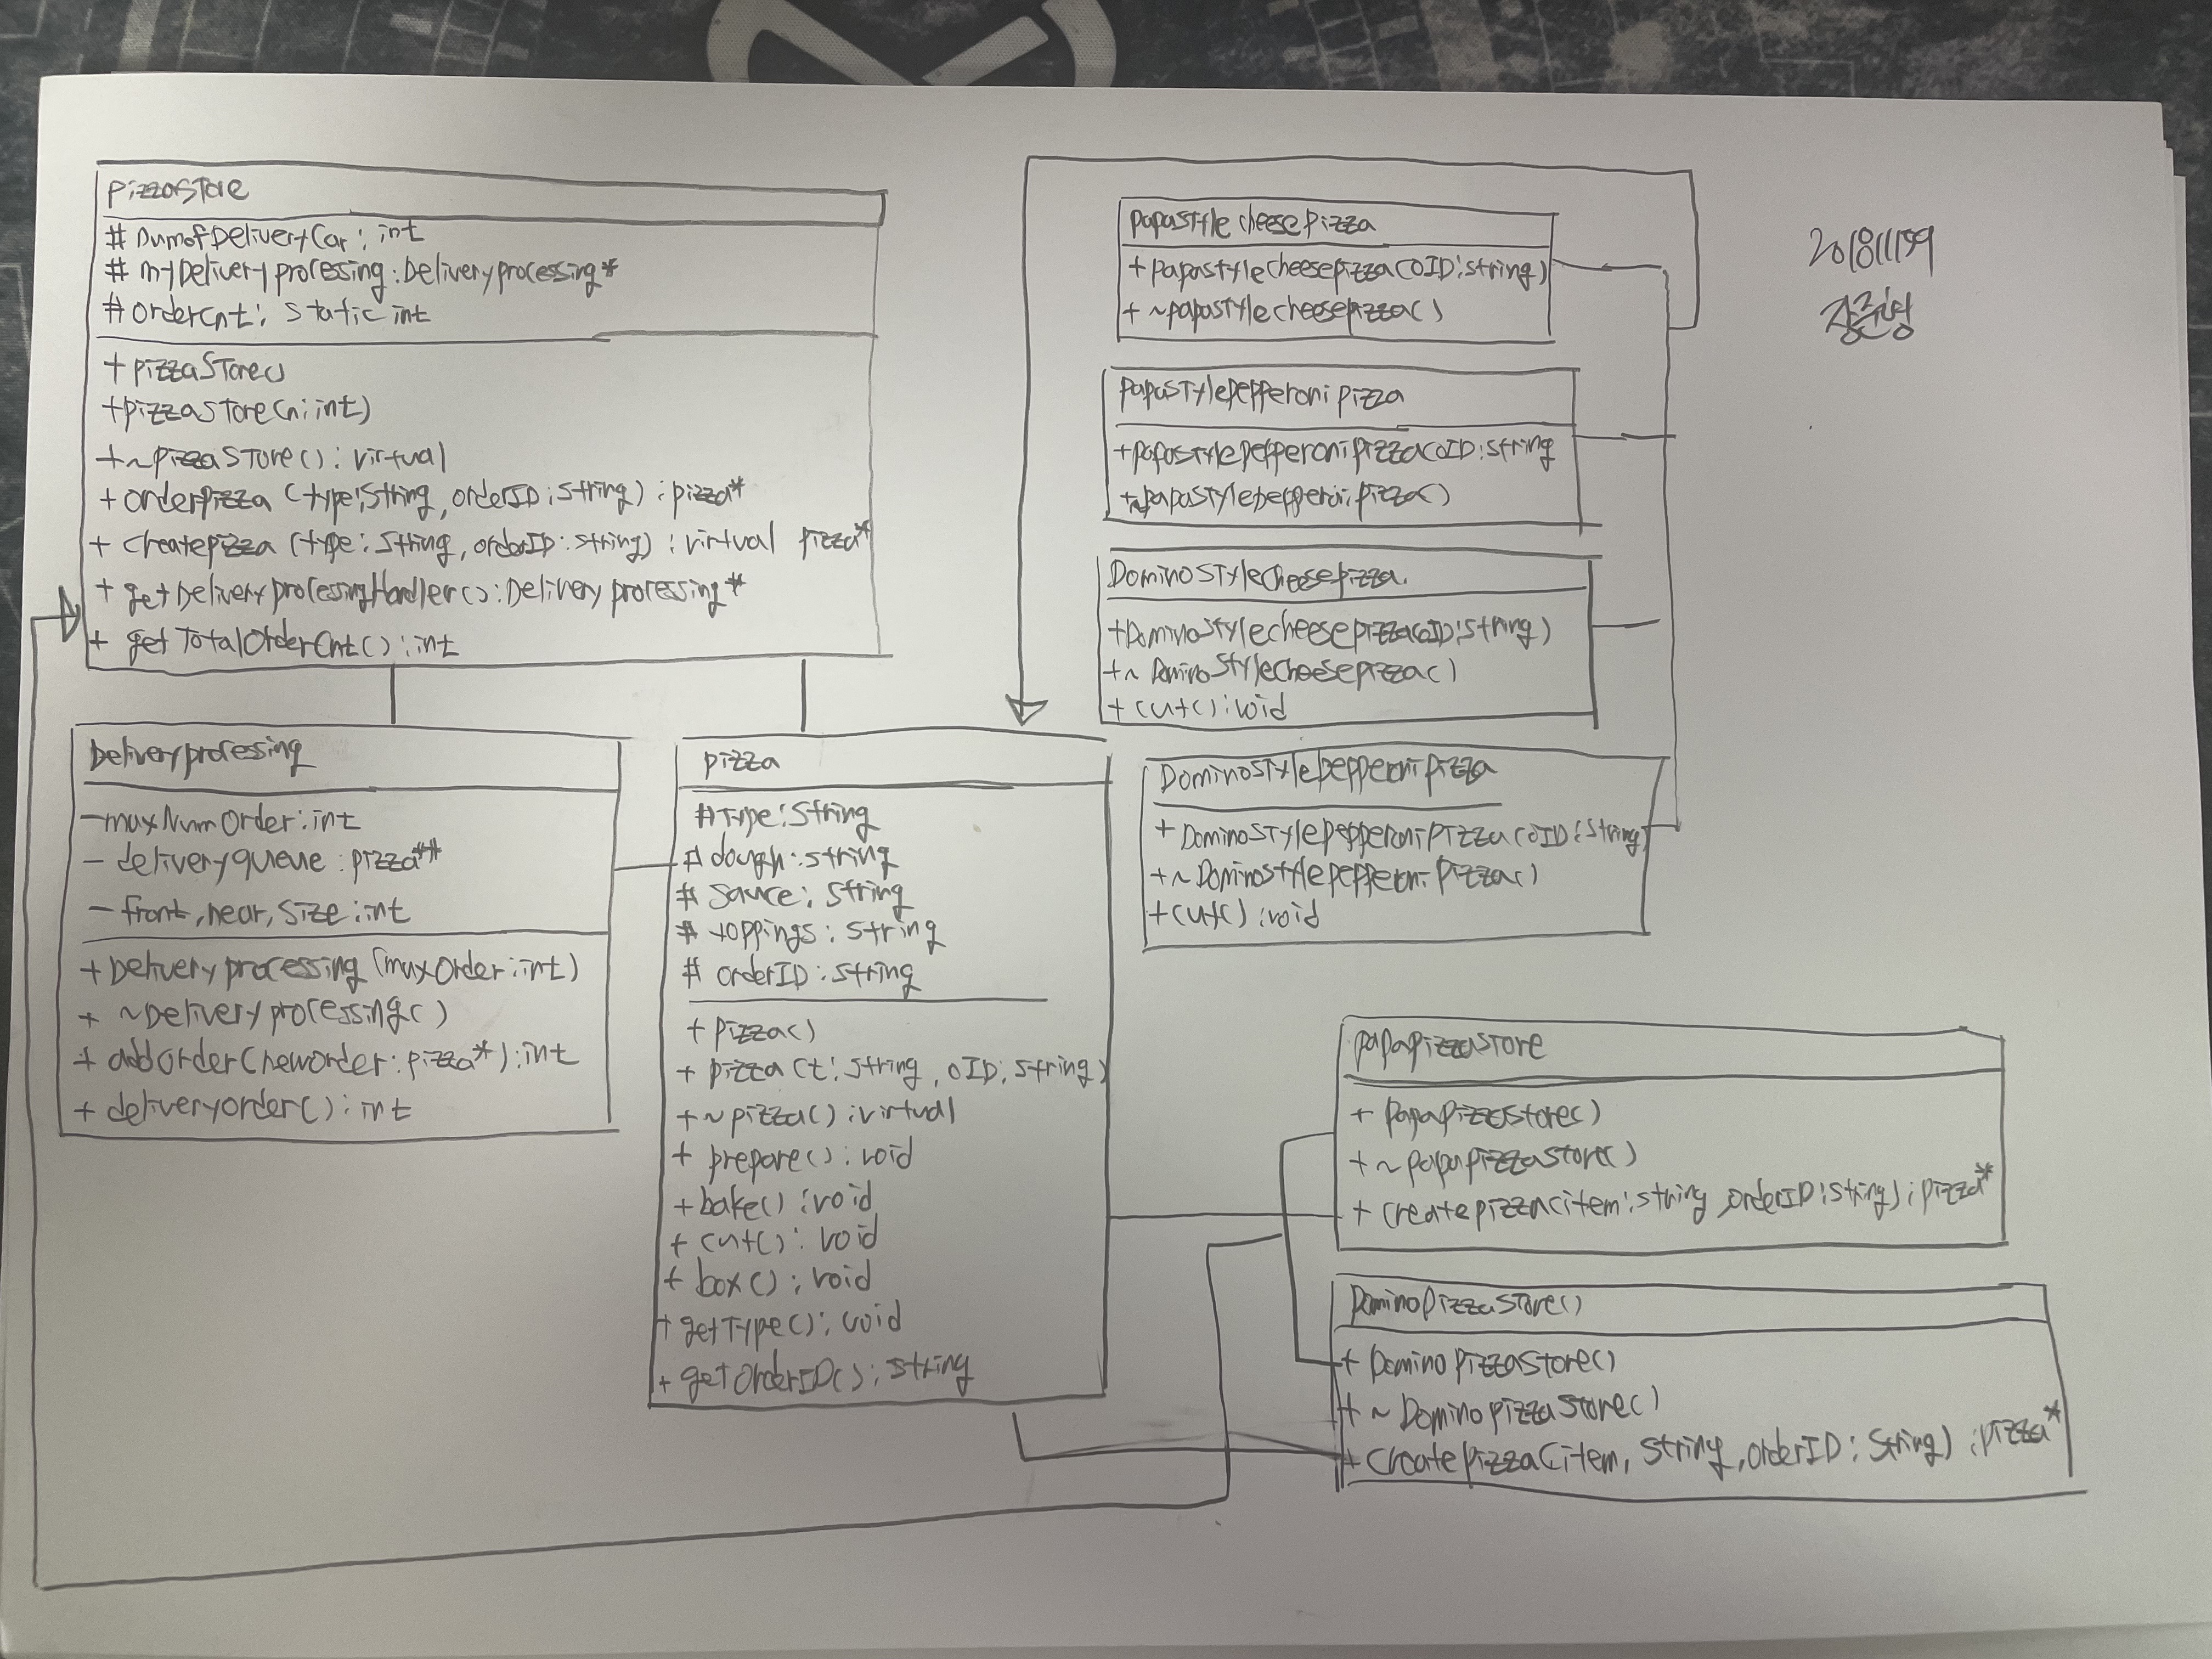 pizzaStore
# numofDeliveryCar : int
# myDeliveryprocessing : Deliveryprocessing*
# orderCnt : static int
+ pizzaStore()
+ pizzaStore(n:int)
+ ~pizzaStore() : virtual
+ orderpizza (type:String, orderID:String) : pizza*
+ createpizza (type:String, orderID:String) : virtual pizza*
+ getDeliveryprocessingHandler() : Deliveryprocessing*
+ getTotalOrderCnt() : int
Deliveryprocessing
- maxNumOrder : int
- deliveryQueue : pizza**
- front, rear, size : int
+ Deliveryprocessing (maxOrder : int)
+ ~Deliveryprocessing()
+ addOrder(newOrder : pizza*) : int
+ deliveryOrder() : int
pizza
# type : String
# dough : String
# sauce : String
# toppings : String
# orderID : String
+ pizza()
+ pizza(t : String, oID : String)
+ ~pizza() : virtual
+ prepare() : void
+ bake() : void
+ cut() : void
+ box() : void
+ getType() : void
+ getOrderID() : String
papaStylecheesepizza
+ papaStylecheesepizza(oID:string)
+ ~papaStylecheesepizza()
papaStylepepperonipizza
+ papaStylepepperonipizza(oID:String
+ ~papaStylepepperonipizza()
DominoStylecheesepizza
+ DominoStylecheesepizza(oID:String)
+ ~DominoStylecheesepizza()
+ cut() : void
DominoStylepepperonipizza
+ DominoStylepepperonipizza(oID:String)
+ ~DominoStylepepperonipizza()
+ cut() : void
papapizzaStore
+ papapizzaStore()
+ ~papapizzaStore()
+ createpizza(item:string, orderID:String) : pizza*
DominopizzaStore()
+ DominopizzaStore()
+ ~DominopizzaStore()
+ createpizza(item, String, orderID : String) : pizza*